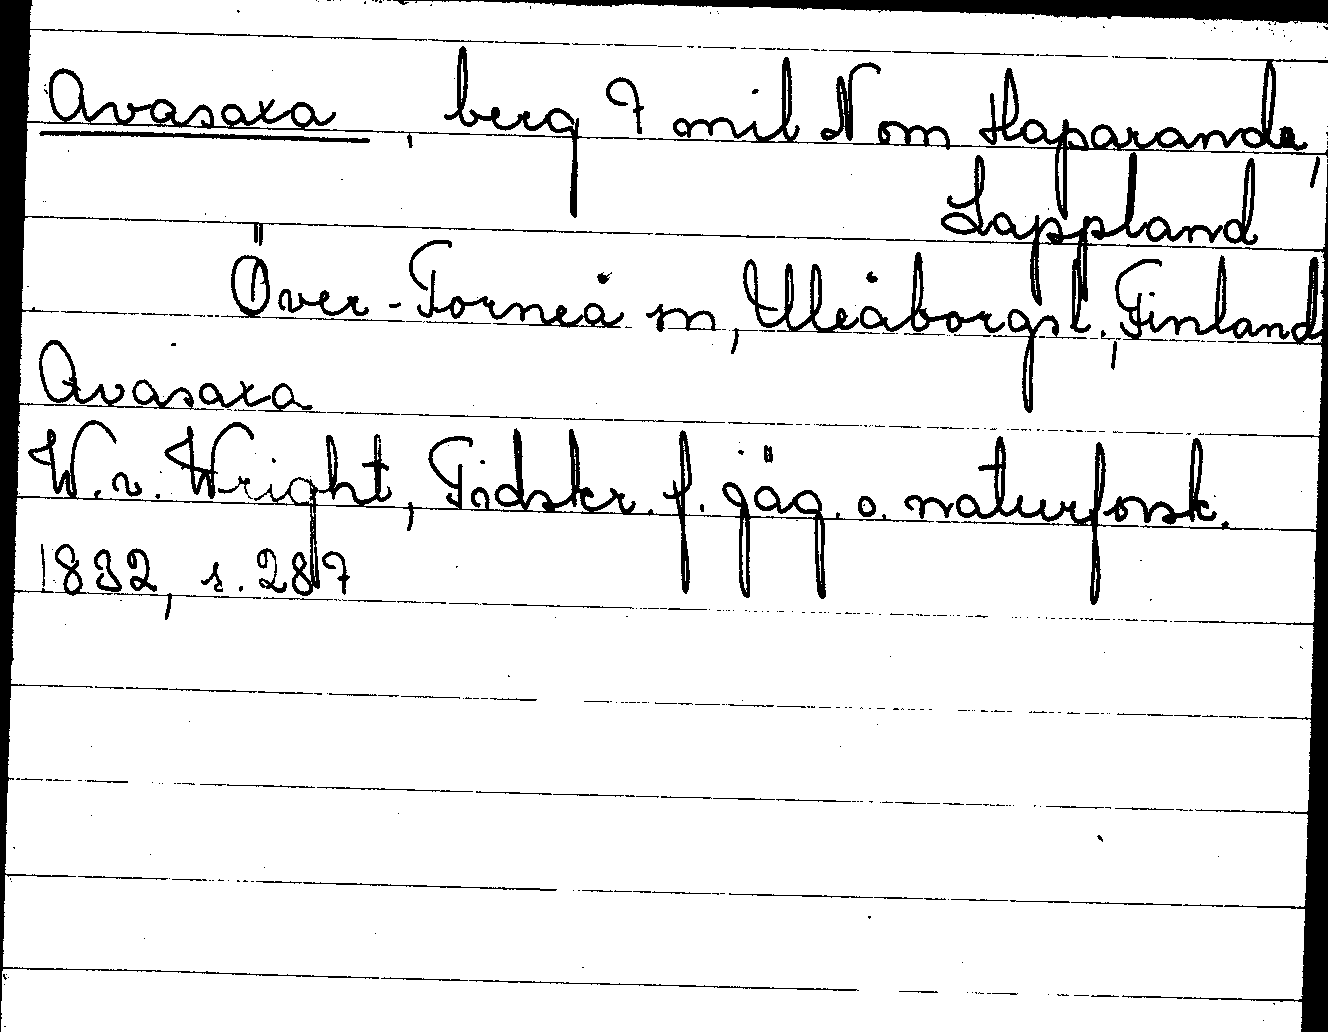 Avasaxa, berg 7 mil N om Haparanda,
Lappland
Över-Torneå sn, Uleåborgsl., Finland
Avasaxa
W. v. Wright, Tidskr. f. jäg. o. naturforsk.
1832, s. 287